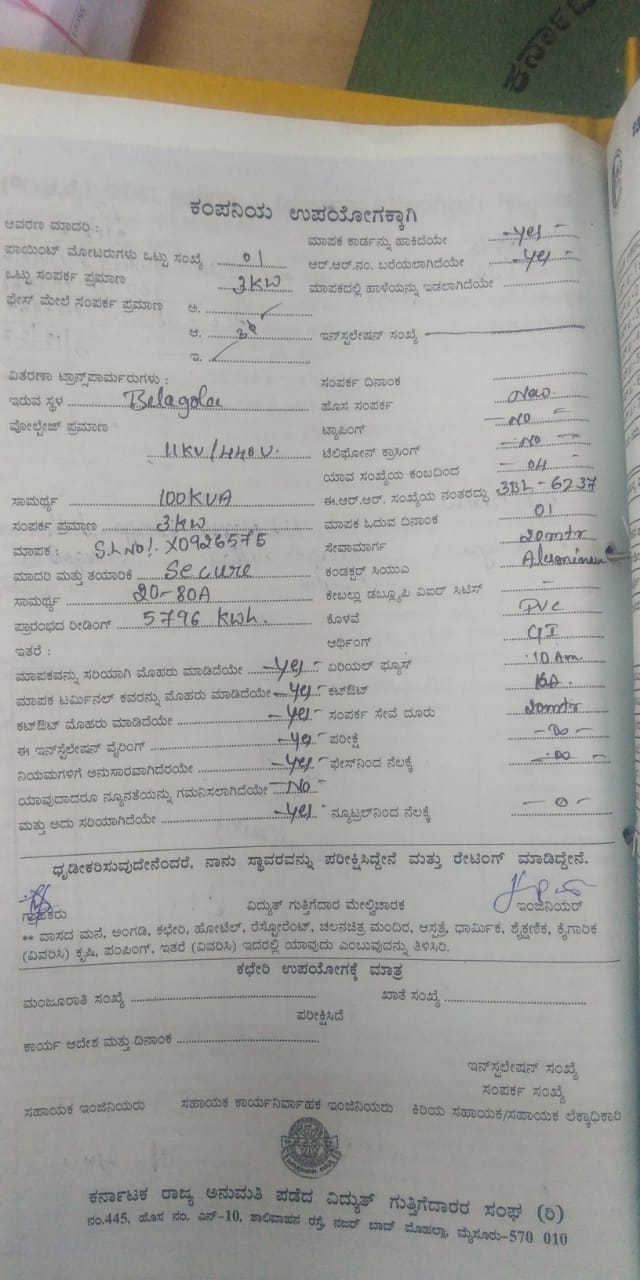 ಕರ್ನಾಟಕ
ಕಂಪನಿಯ ಉಪಯೋಗಕ್ಕಾಗಿ
ಆವರಣ ಮಾದರಿ :
ಮಾಪಕ ಕಾರ್ಡನ್ನು ಹಾಕಿದೆಯೇ -Yes-
ಪಾಯಿಂಟ್ ಮೋಟರುಗಳು ಒಟ್ಟು ಸಂಖ್ಯೆ 01 ಆರ್.ಆರ್.ನಂ. ಬರೆಯಲಾಗಿದೆಯೇ -Yes-
ಒಟ್ಟು ಸಂಪರ್ಕ ಪ್ರಮಾಣ 3KW ಮಾಪಕದಲ್ಲಿ ಹಾಳೆಯನ್ನು ಇಡಲಾಗಿದೆಯೇ
ಫೇಸ್ ಮೇಲೆ ಸಂಪರ್ಕ ಪ್ರಮಾಣ ಅ.
ಆ. ಇನ್‌ಸ್ಟಲೇಷನ್ ಸಂಖ್ಯೆ
ಇ.
ವಿತರಣಾ ಟ್ರಾನ್ಸ್‌ಫಾರ್ಮರುಗಳು : ಸಂಪರ್ಕ ದಿನಾಂಕ
ಇರುವ ಸ್ಥಳ Belagola ಹೊಸ ಸಂಪರ್ಕ New
ವೋಲ್ಟೇಜ್ ಪ್ರಮಾಣ ಟ್ಯಾಪಿಂಗ್ -NO-
11KV/440V. ಟೆಲಿಫೋನ್ ಕ್ರಾಸಿಂಗ್ -NO-
ಯಾವ ಸಂಖ್ಯೆಯ ಕಂಬದಿಂದ -04-
ಸಾಮರ್ಥ್ಯ 100KVA ಈ.ಆರ್.ಆರ್. ಸಂಖ್ಯೆಯ ನಂತರದ್ದು 3BL-6237
ಸಂಪರ್ಕ ಪ್ರಮಾಣ 3KW ಮಾಪಕ ಓದುವ ದಿನಾಂಕ 01
ಮಾಪಕ : S.L NO! X0926575 ಸೇವಾಮಾರ್ಗ 20mtr
ಮಾದರಿ ಮತ್ತು ತಯಾರಿಕೆ Secure ಕಂಡಕ್ಟರ್ ಸಿಯುಎ Aluminium
ಸಾಮರ್ಥ್ಯ 20-80A ಕೇಬಲ್ಲು ಡಬ್ಲ್ಯೂಪಿ ವಿಐಆರ್ ಸಿಟಿಎಸ್ -
ಪ್ರಾರಂಭದ ರೀಡಿಂಗ್ 5796 KWh. ಕೊಳವೆ PVC
ಇತರೆ : ಆರ್ಥಿಂಗ್ GI
ಮಾಪಕವನ್ನು ಸರಿಯಾಗಿ ಮೊಹರು ಮಾಡಿದೆಯೇ -Yes- ಏರಿಯಲ್ ಫ್ಯೂಸ್ 10 Am
ಮಾಪಕ ಟರ್ಮಿನಲ್ ಕವರನ್ನು ಮೊಹರು ಮಾಡಿದೆಯೇ -Yes- ಕಟ್ಔಟ್ 16A.
ಕಟ್ಔಟ್ ಮೊಹರು ಮಾಡಿದೆಯೇ -Yes- ಸಂಪರ್ಕ ಸೇವೆ ದೂರು 20mtr
ಈ ಇನ್‌ಸ್ಟಲೇಷನ್ ವೈರಿಂಗ್ -Yes- ಪರೀಕ್ಷೆ
ನಿಯಮಗಳಿಗೆ ಅನುಸಾರವಾಗಿದೆರಯೇ -Yes- ಫೇಸ್‌ನಿಂದ ನೆಲಕ್ಕೆ
ಯಾವುದಾದರೂ ನ್ಯೂನತೆಯನ್ನು ಗಮನಿಸಲಾಗಿದೆಯೇ -No-
ಮತ್ತು ಅದು ಸರಿಯಾಗಿದೆಯೇ -Yes- ನ್ಯೂಟ್ರಲ್‌ನಿಂದ ನೆಲಕ್ಕೆ -0-
ಧೃಡೀಕರಿಸುವುದೇನೆಂದರೆ, ನಾನು ಸ್ಥಾವರವನ್ನು ಪರೀಕ್ಷಿಸಿದ್ದೇನೆ ಮತ್ತು ರೇಟಿಂಗ್ ಮಾಡಿದ್ದೇನೆ.
ಗ್ರಾಹಕರು ವಿದ್ಯುತ್ ಗುತ್ತಿಗೆದಾರ ಮೇಲ್ವಿಚಾರಕ ಇಂಜಿನಿಯರ್
** ವಾಸದ ಮನೆ, ಅಂಗಡಿ, ಕಛೇರಿ, ಹೋಟೆಲ್, ರೆಸ್ಟೋರೆಂಟ್, ಚಲನಚಿತ್ರ ಮಂದಿರ, ಆಸ್ಪತ್ರೆ, ಧಾರ್ಮಿಕ, ಶೈಕ್ಷಣಿಕ, ಕೈಗಾರಿಕ
(ವಿವರಿಸಿ) ಕೃಷಿ, ಪಂಪಿಂಗ್, ಇತರೆ (ವಿವರಿಸಿ) ಇದರಲ್ಲಿ ಯಾವುದು ಎಂಬುವುದನ್ನು ತಿಳಿಸಿರಿ.
ಕಛೇರಿ ಉಪಯೋಗಕ್ಕೆ ಮಾತ್ರ
ಮಂಜೂರಾತಿ ಸಂಖ್ಯೆ ಖಾತೆ ಸಂಖ್ಯೆ
ಪರೀಕ್ಷಿಸಿದೆ
ಕಾರ್ಯ ಆದೇಶ ಮತ್ತು ದಿನಾಂಕ
ಇನ್‌ಸ್ಟಲೇಷನ್ ಸಂಖ್ಯೆ
ಸಂಪರ್ಕ ಸಂಖ್ಯೆ
ಸಹಾಯಕ ಇಂಜಿನಿಯರು ಸಹಾಯಕ ಕಾರ್ಯನಿರ್ವಾಹಕ ಇಂಜಿನಿಯರು ಕಿರಿಯ ಸಹಾಯಕ/ಸಹಾಯಕ ಲೆಕ್ಕಾಧಿಕಾರಿ
ಕರ್ನಾಟಕ ರಾಜ್ಯ ಅನುಮತಿ ಪಡೆದ ವಿದ್ಯುತ್ ಗುತ್ತಿಗೆದಾರರ ಸಂಘ (ರಿ)
ನಂ.445, ಹೊಸ ನಂ. ಎನ್-10, ಶಾಲಿವಾಹನ ರಸ್ತೆ, ನಜರ್ ಬಾದ್ ಮೊಹಲ್ಲಾ, ಮೈಸೂರು-570 010